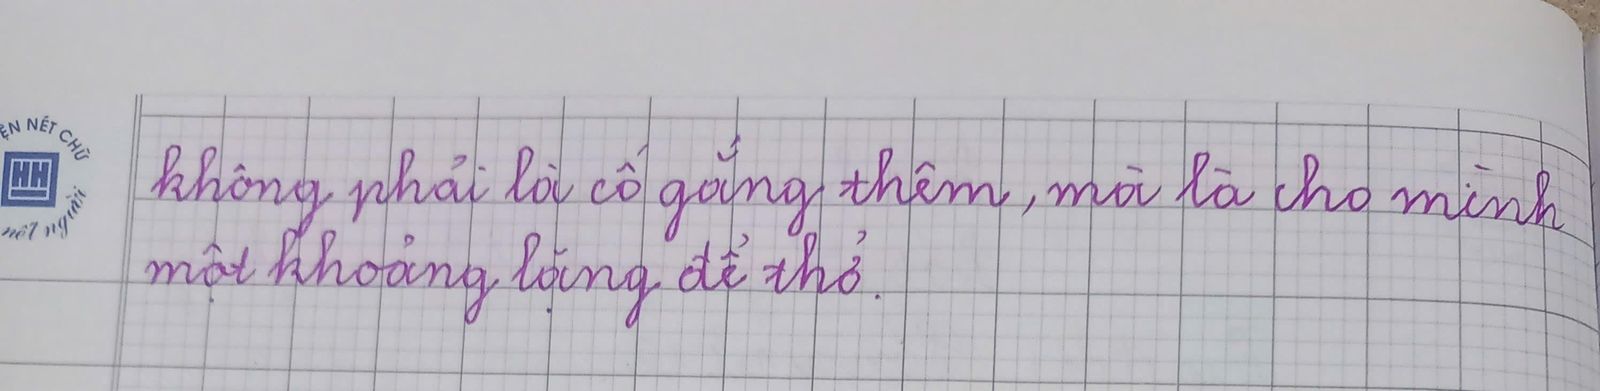 ỆN NẾT CHỮ
HH
nết người
không phải là cố gắng thêm, mà là cho mình
một khoảng lặng để thở.